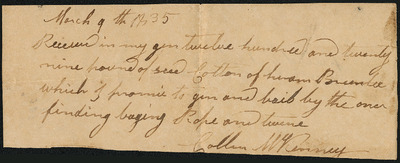 March 9th 1835
Received in my gin twelve hundred and twenty
nine pound of seed Cotton of hiram
which I promise to gin and bail by the oner
finding baging Rope and twine
Collin McKenney